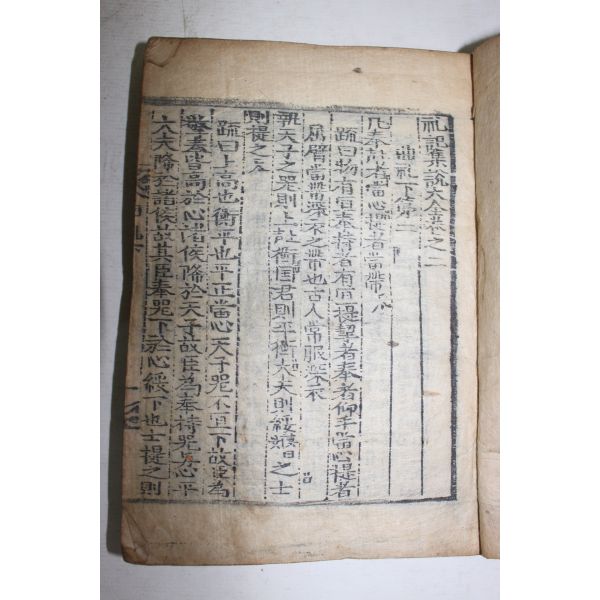 礼記集說大全卷之二
曲礼下第二
凡奉者當心提者當帶
疏曰物有宜奉持者有宜提挈者奉者仰手當心提者
屈臂當帶深衣之帶也古人常服深衣
執天子之器則上衡国君則平衡大夫則綏之士
則提之
疏曰上高也衡平也平正當心天子器不宜下故臣為
奉皆高於心諸侯降於天子故臣為奉持器與心平
大夫降於諸侯故其臣奉器下於心綏下也士提之則